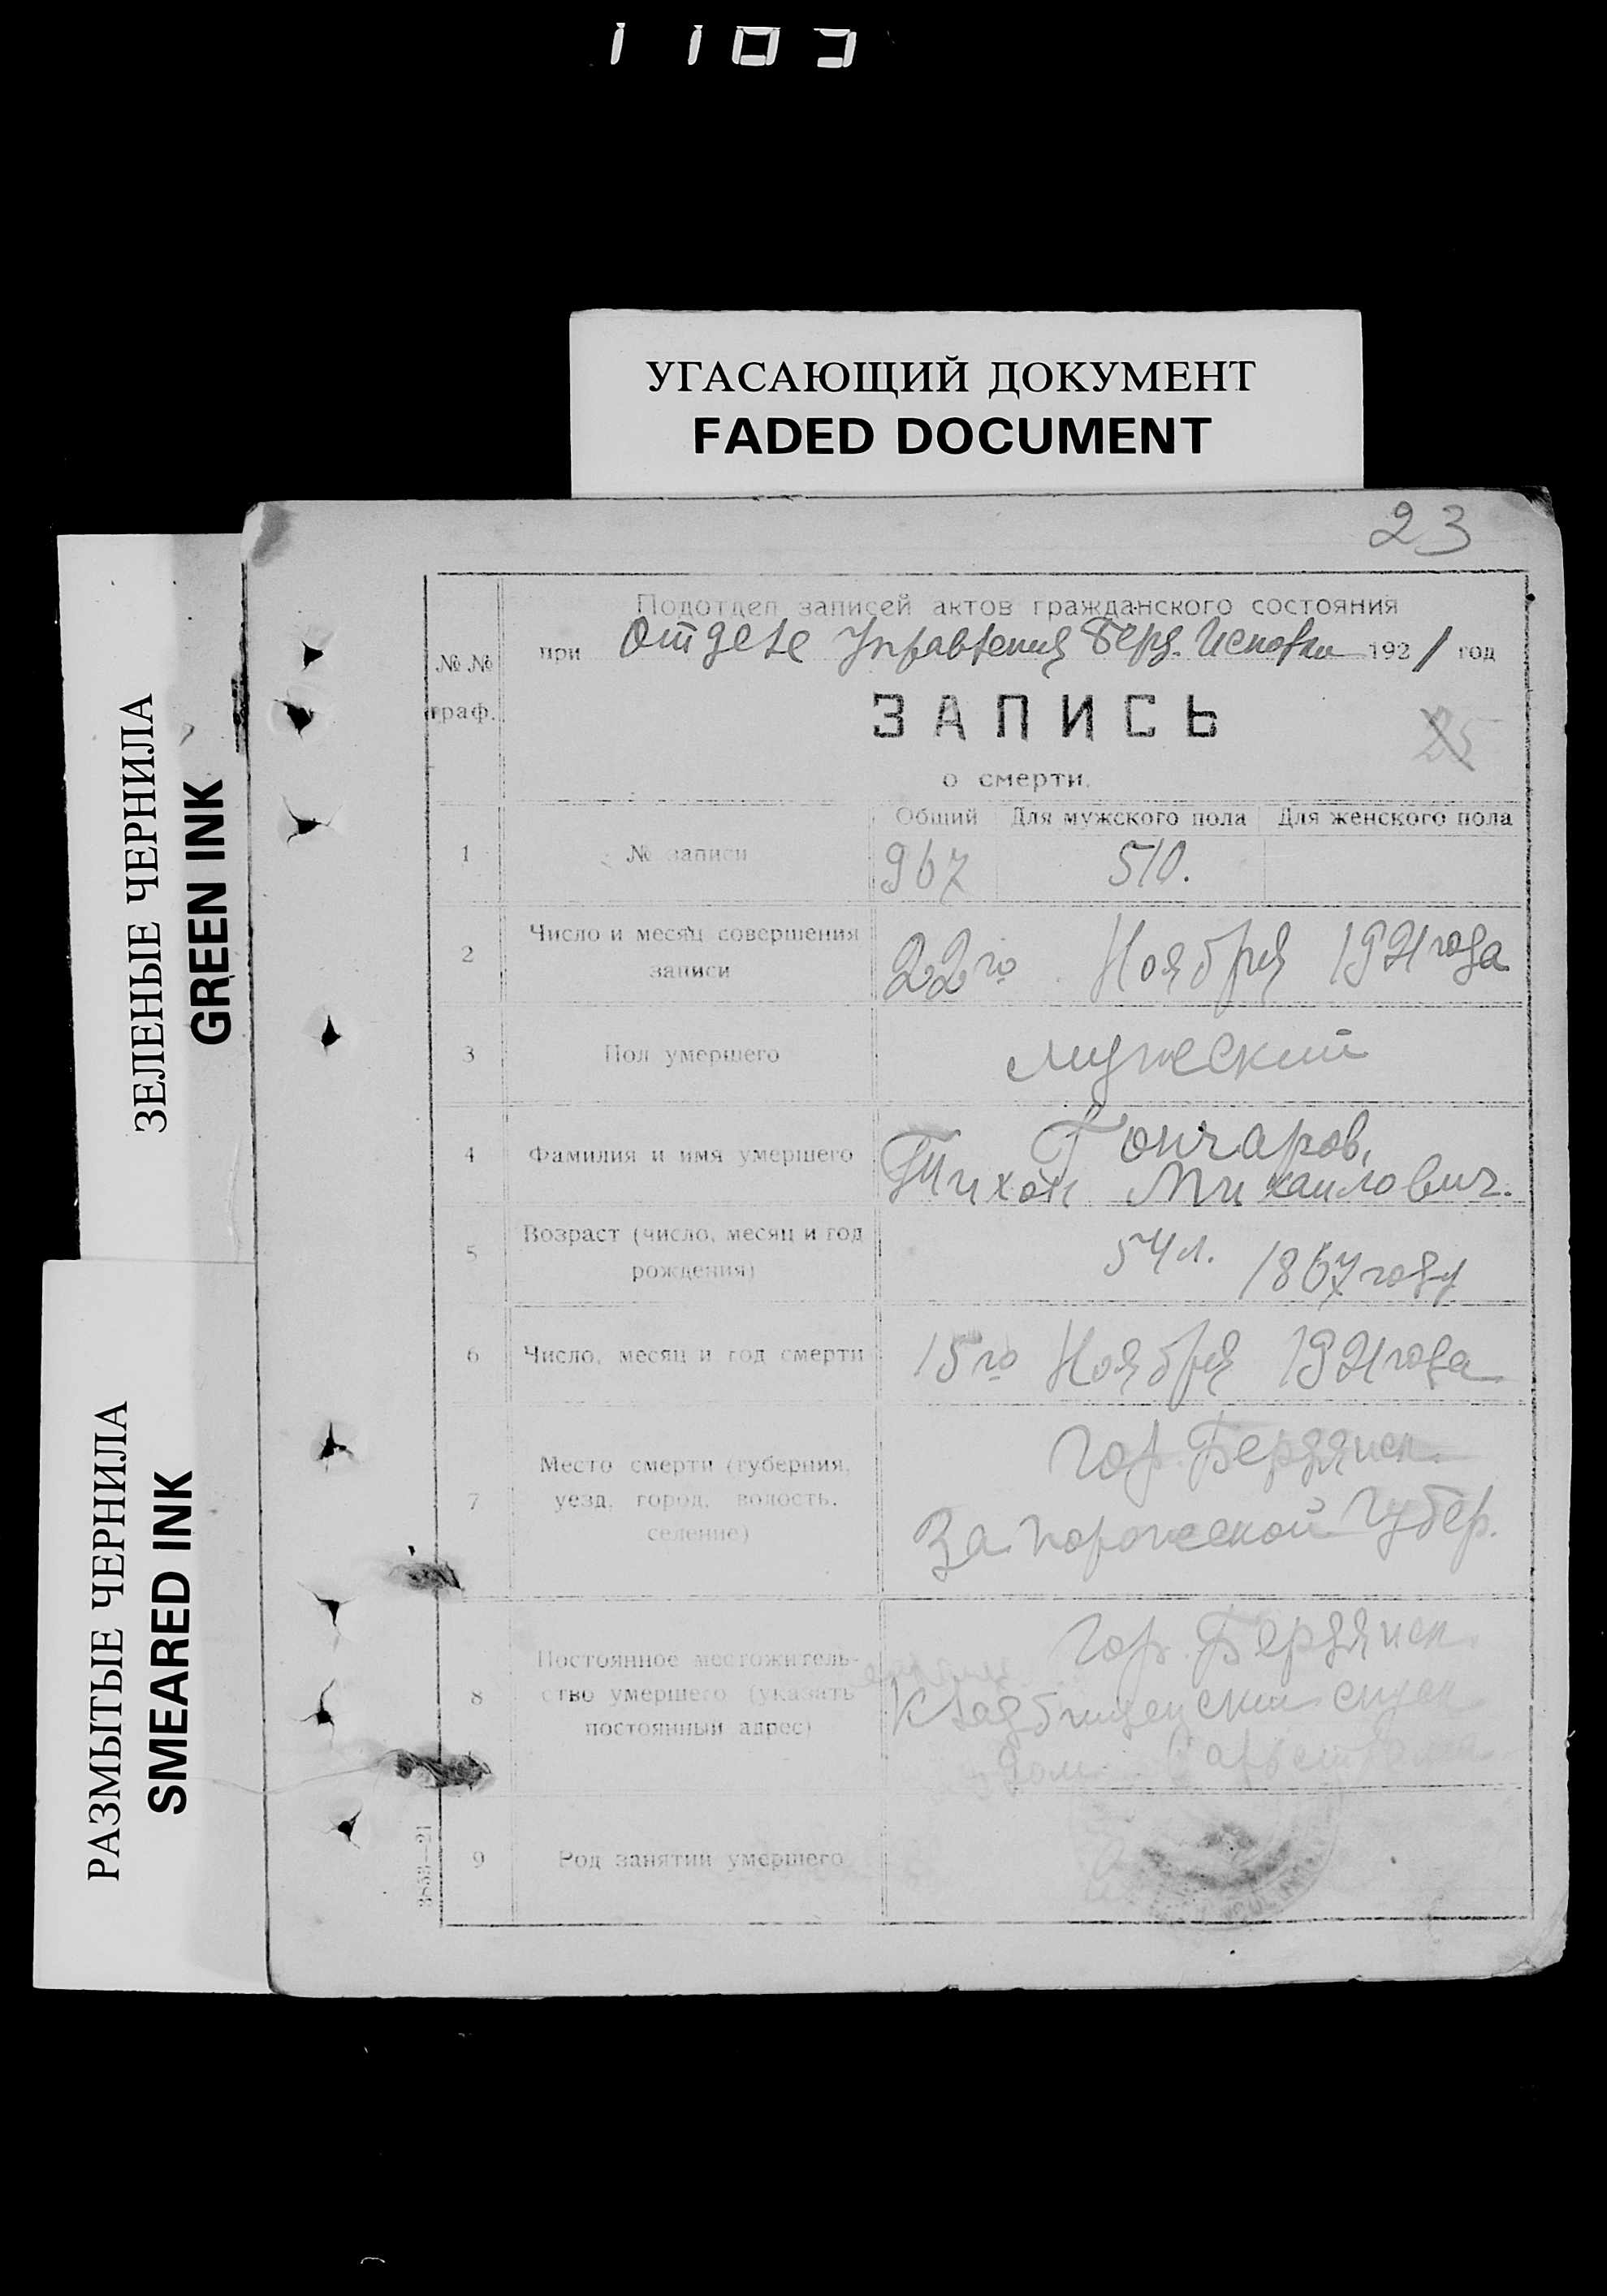 1103
УГАСАЮЩИЙ ДОКУМЕНТ
FADED DOCUMENT
ЗЕЛЕНЫЕ ЧЕРНИЛА
GREEN INK
РАЗМЫТЫЕ ЧЕРНИЛА
SMEARED INK
23
Подотдел записей актов гражданского состояния
при Отделе Управления Берд. Исполкома 1921 год
№№ граф.
ЗАПИСЬ
25
о смерти.
Общий Для мужского пола Для женского пола
1 № записи 967 510.
2 Число и месяц совершения
записи 22го Ноября 1921 года
3 Пол умершего мужеский
4 Фамилия и имя умершего Гончаров,
Тихон Михаилович.
5 Возраст (число, месяц и год
рождения) 54 л. 1867 году
6 Число, месяц и год смерти 15го Ноября 1921 года
7 Место смерти (губерния,
уезд, город, волость,
селение)
гор. Бердянск.
Запорожской Губер.
8 Постоянное местожитель-
ство умершего (указать
постоянный адрес)
гор. Бердянск.
Кладбищенский спуск
дом
9 Род занятий умершего
3853—21